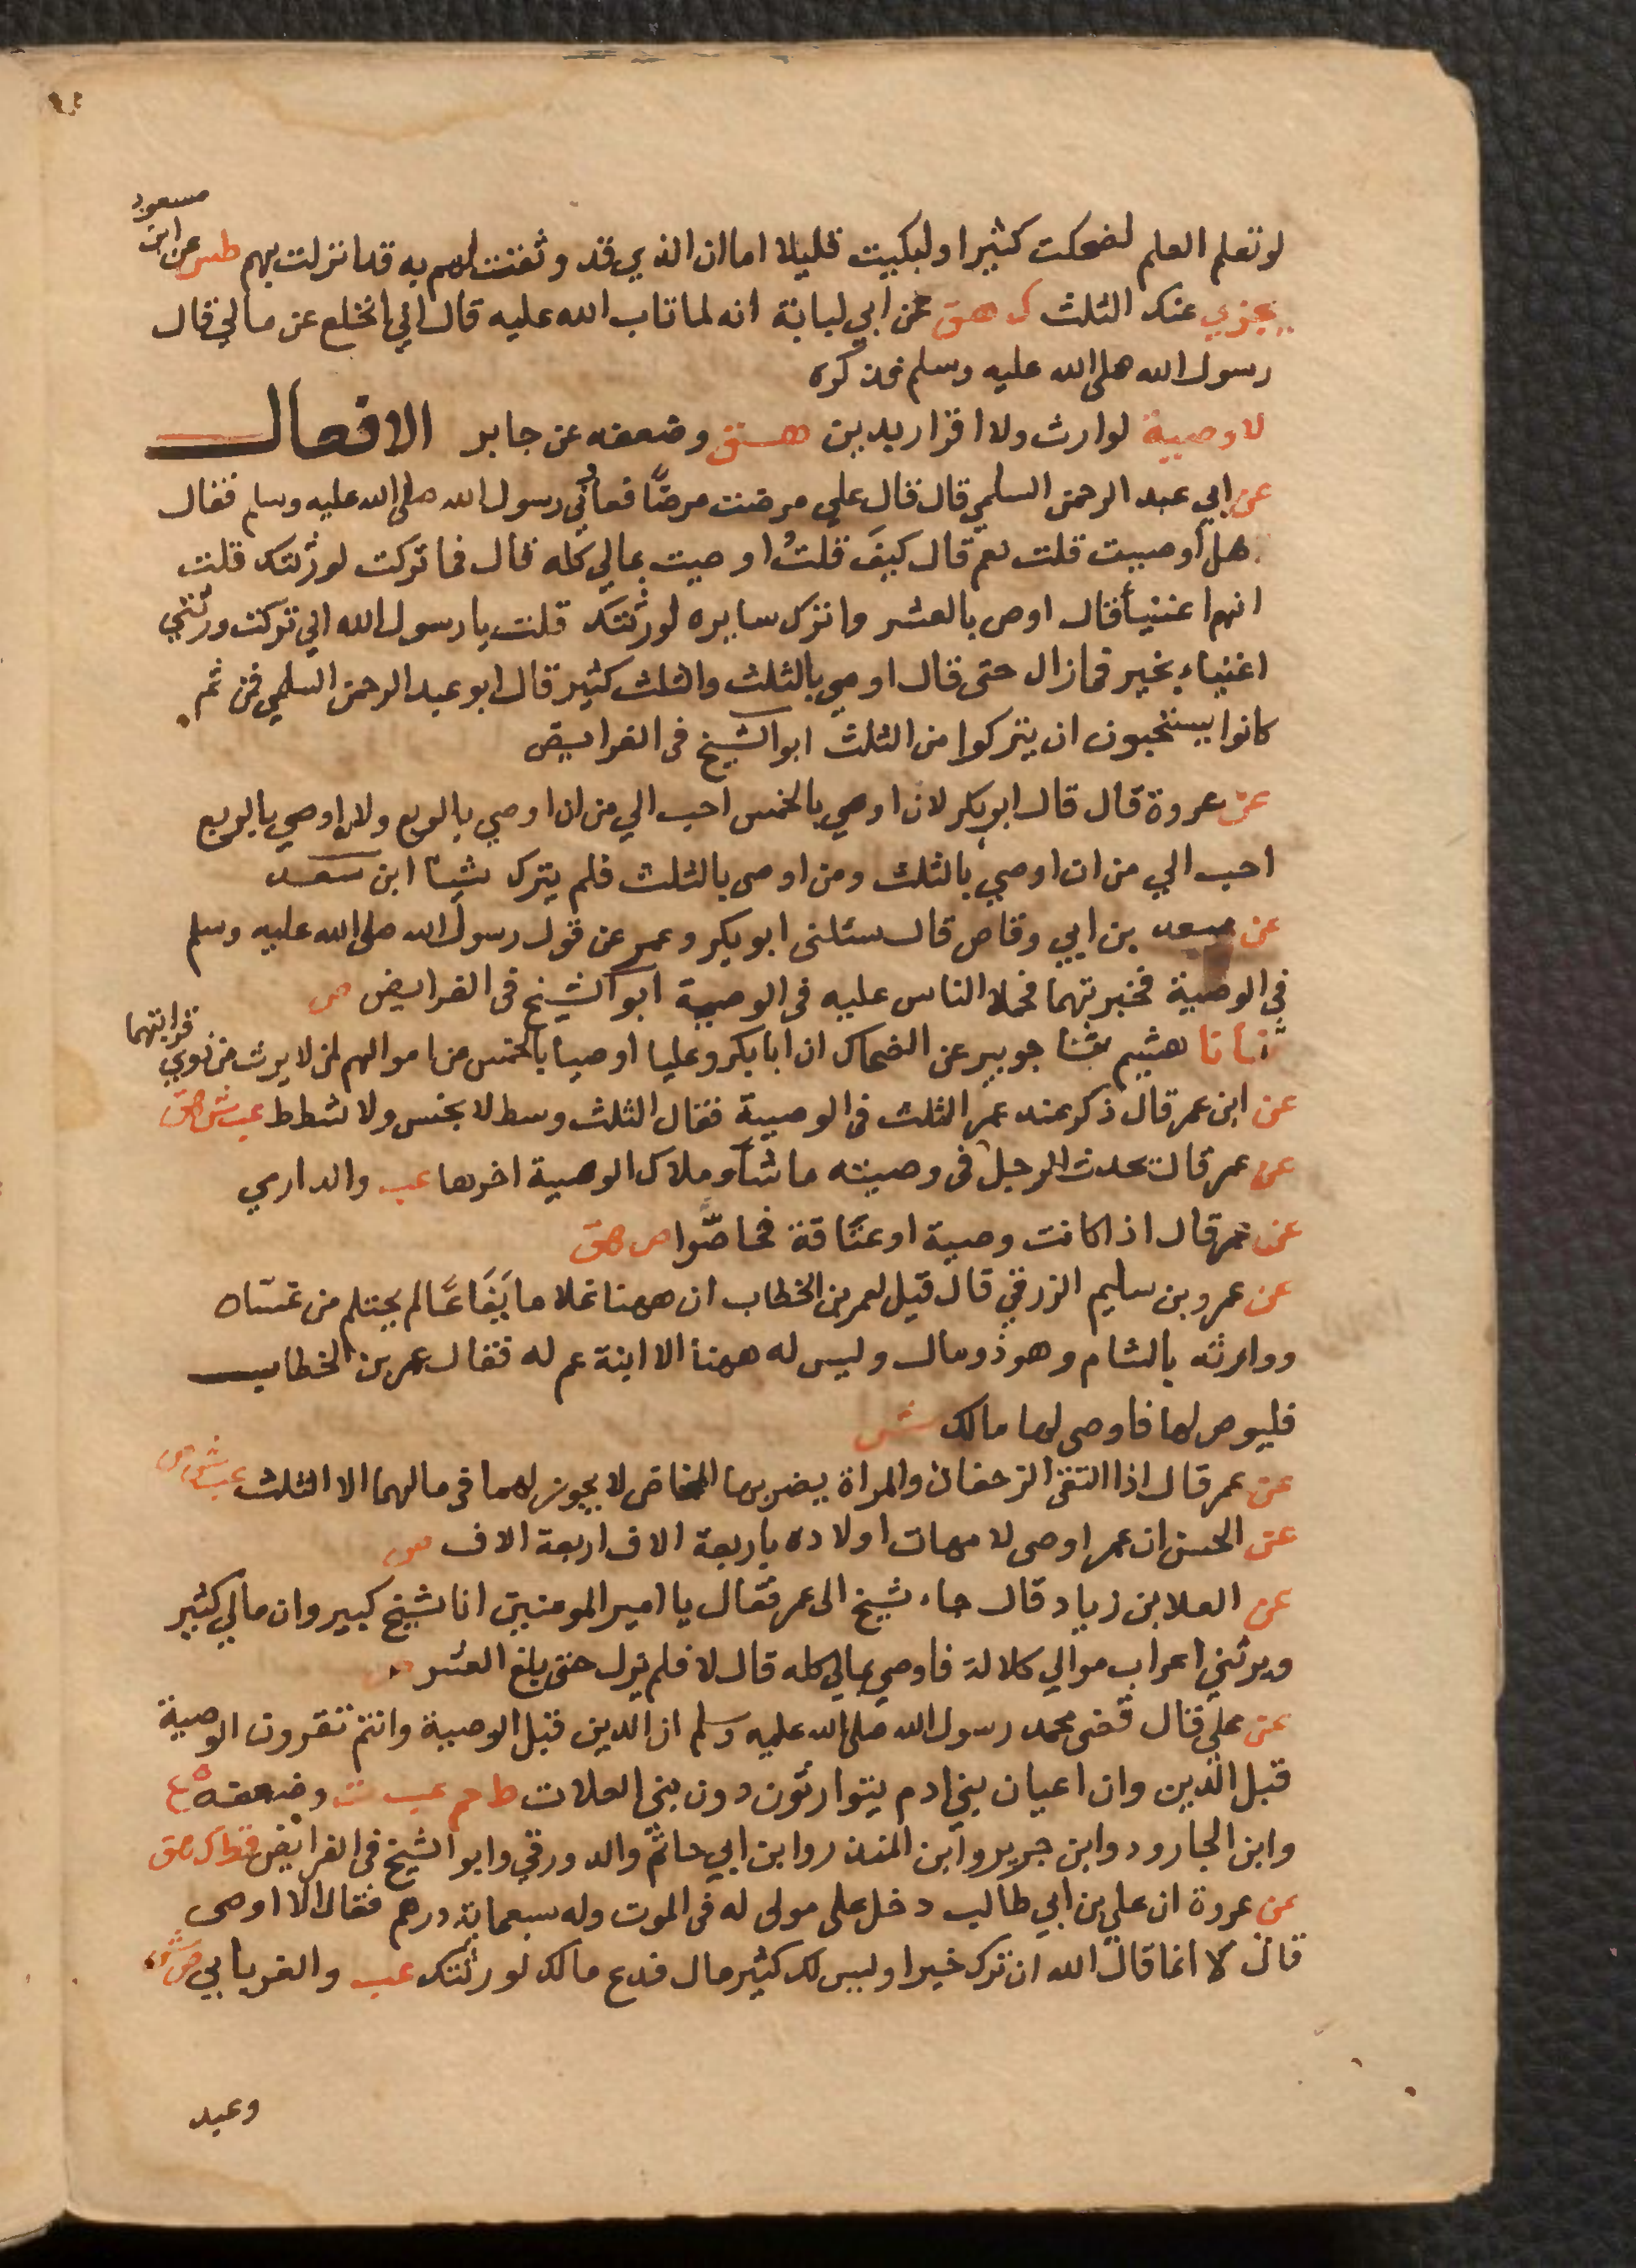 لو تعلم العلم لضحكت كثيرا ولبكيت قليلا اما ان الذي قد وثقت لهم به قد انزلت بهم طس عن ابن مسعود
يجزي عنك الثلث ك هق عن ابي لبابة انه لما تاب الله عليه قال اني انخلع عن مالي قال
رسول الله صلى الله عليه وسلم فذكره
لا وصية لوارث ولا اقرار بدين هق وضعفه عن جابر الافعال
عن ابي عبد الرحمن السلمي قال قال علي مرضت مرضا فعادني رسول الله صلى الله عليه وسلم فقال
هل أوصيت قلت نعم قال كيف قلت اوصيت بمالي كله قال فما تركت لورثتك قلت
انهم اغنيأ فقال اوص بالعشر واترك سايره لورثتك قلت يا رسول الله اني تركت ورثتي
اغنياء بخير فما زال حتى قال اوصي بالثلث والثلث كثير قال ابو عبد الرحمن السلمي فمن ثم
كانوا يستحبون ان يتركوا من الثلث ابو الشيخ فى الفرايض
عن عروة قال قال ابو بكر لان اوصي بالخمس احب الي من ان اوصي بالربع ولان اوصي بالربع
احب الي من ان اوصي بالثلث ومن اوصى بالثلث فلم يترك شيأ ابن سعد
عن سعد بن ابي وقاص قال سئلنى ابو بكر وعمر عن قول رسول الله صلى الله عليه وسلم
في الوصية فخبرتهما فحملا الناس عليه فى الوصية ابو الشيخ فى الفرايض ص
ثنا نا هشيم ثنا جويبر عن الضحاك ان ابا بكر وعليا اوصيا بالخمس من اموالهم لمن لا يرث من ذوي قرابتهما
عن ابن عمر قال ذكر عند عمر الثلث فى الوصية فقال الثلث وسط لا بخس ولا شطط عب ش هق
عن عمر قال يحدث الرجل فى وصيته ما شآ وملاك الوصية اخرها عب والدارمي
عن عمر قال اذا كانت وصية او عتاقة فحاصّوا ص هق
عن عمرو بن سليم الزرقي قال قيل لعمر بن الخطاب ان ههنا غلاما يفاعا لم يحتلم من غسان
ووارثه بالشام وهو ذو مال وليس له ههنا الا ابنة عم له فقال عمر بن الخطاب
فليوص لها فاوصى لها مالك ش
عن عمر قال اذا التقى الزحفان والمراة يضربها المخاض لا يجوز لهما فى مالهما الا الثلث عب ش ص
عن الحسن ان عمر اوصى لامهات اولاده باربعة الاف اربعة الاف ص
عن العلا بن زياد قال جاء شيخ الى عمر فقال يا امير المومنين انا شيخ كبير وان مالي كثير
ويرثني اعراب موالي كلالة فاوصي بمالي كله قال لا فلم يزل حتى بلغ العشر ص
عن علي قال قضى محمد رسول الله صلى الله عليه وسلم ان الدين قبل الوصية وانتم تقرون الوصية
قبل الدين وان اعيان بني ادم يتوارثون دون بني العلات ط حم عب ت وضعفه ه ع
وابن الجارود وابن جرير وابن المنذر وابن ابي حاتم والدورقي وابو الشيخ فى الفرائض قط ك هق
عن عروة ان علي بن ابي طالب دخل على مولى له فى الموت وله سبعماية درهم فقال الا اوصي
قال لا انما قال الله ان ترك خيرا وليس لك كثير مال فدع مالك لورثتك عب والفريابي ص ش
وعبد